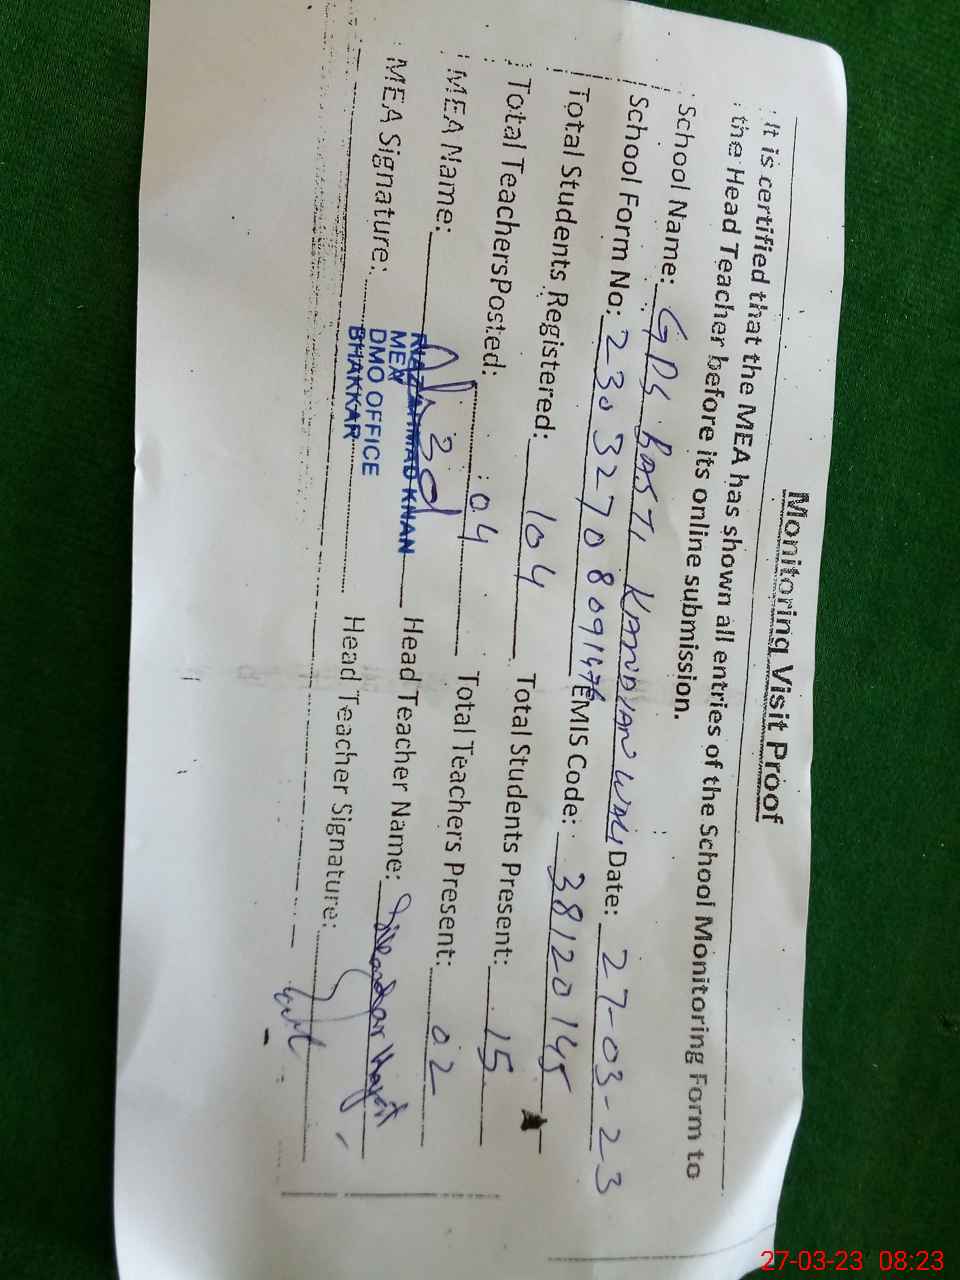 Monitoring Visit Proof
It is certified that the MEA has shown all entries of the School Monitoring Form to
the Head Teacher before its online submission.
School Name: GPS BASTI KANDIAN WALI Date: 27-03-23
School Form No: 230327080914 EMIS Code: 38120145
Total Students Registered: 104 Total Students Present: 15
Total TeachersPosted: 04 Total Teachers Present: 02
MEA Name: Head Teacher Name: Hayat
RIAZ AHMAD KHAN
MEA Signature: Head Teacher Signature:
MEA
DMO OFFICE
BHAKKAR
27-03-23 08:23